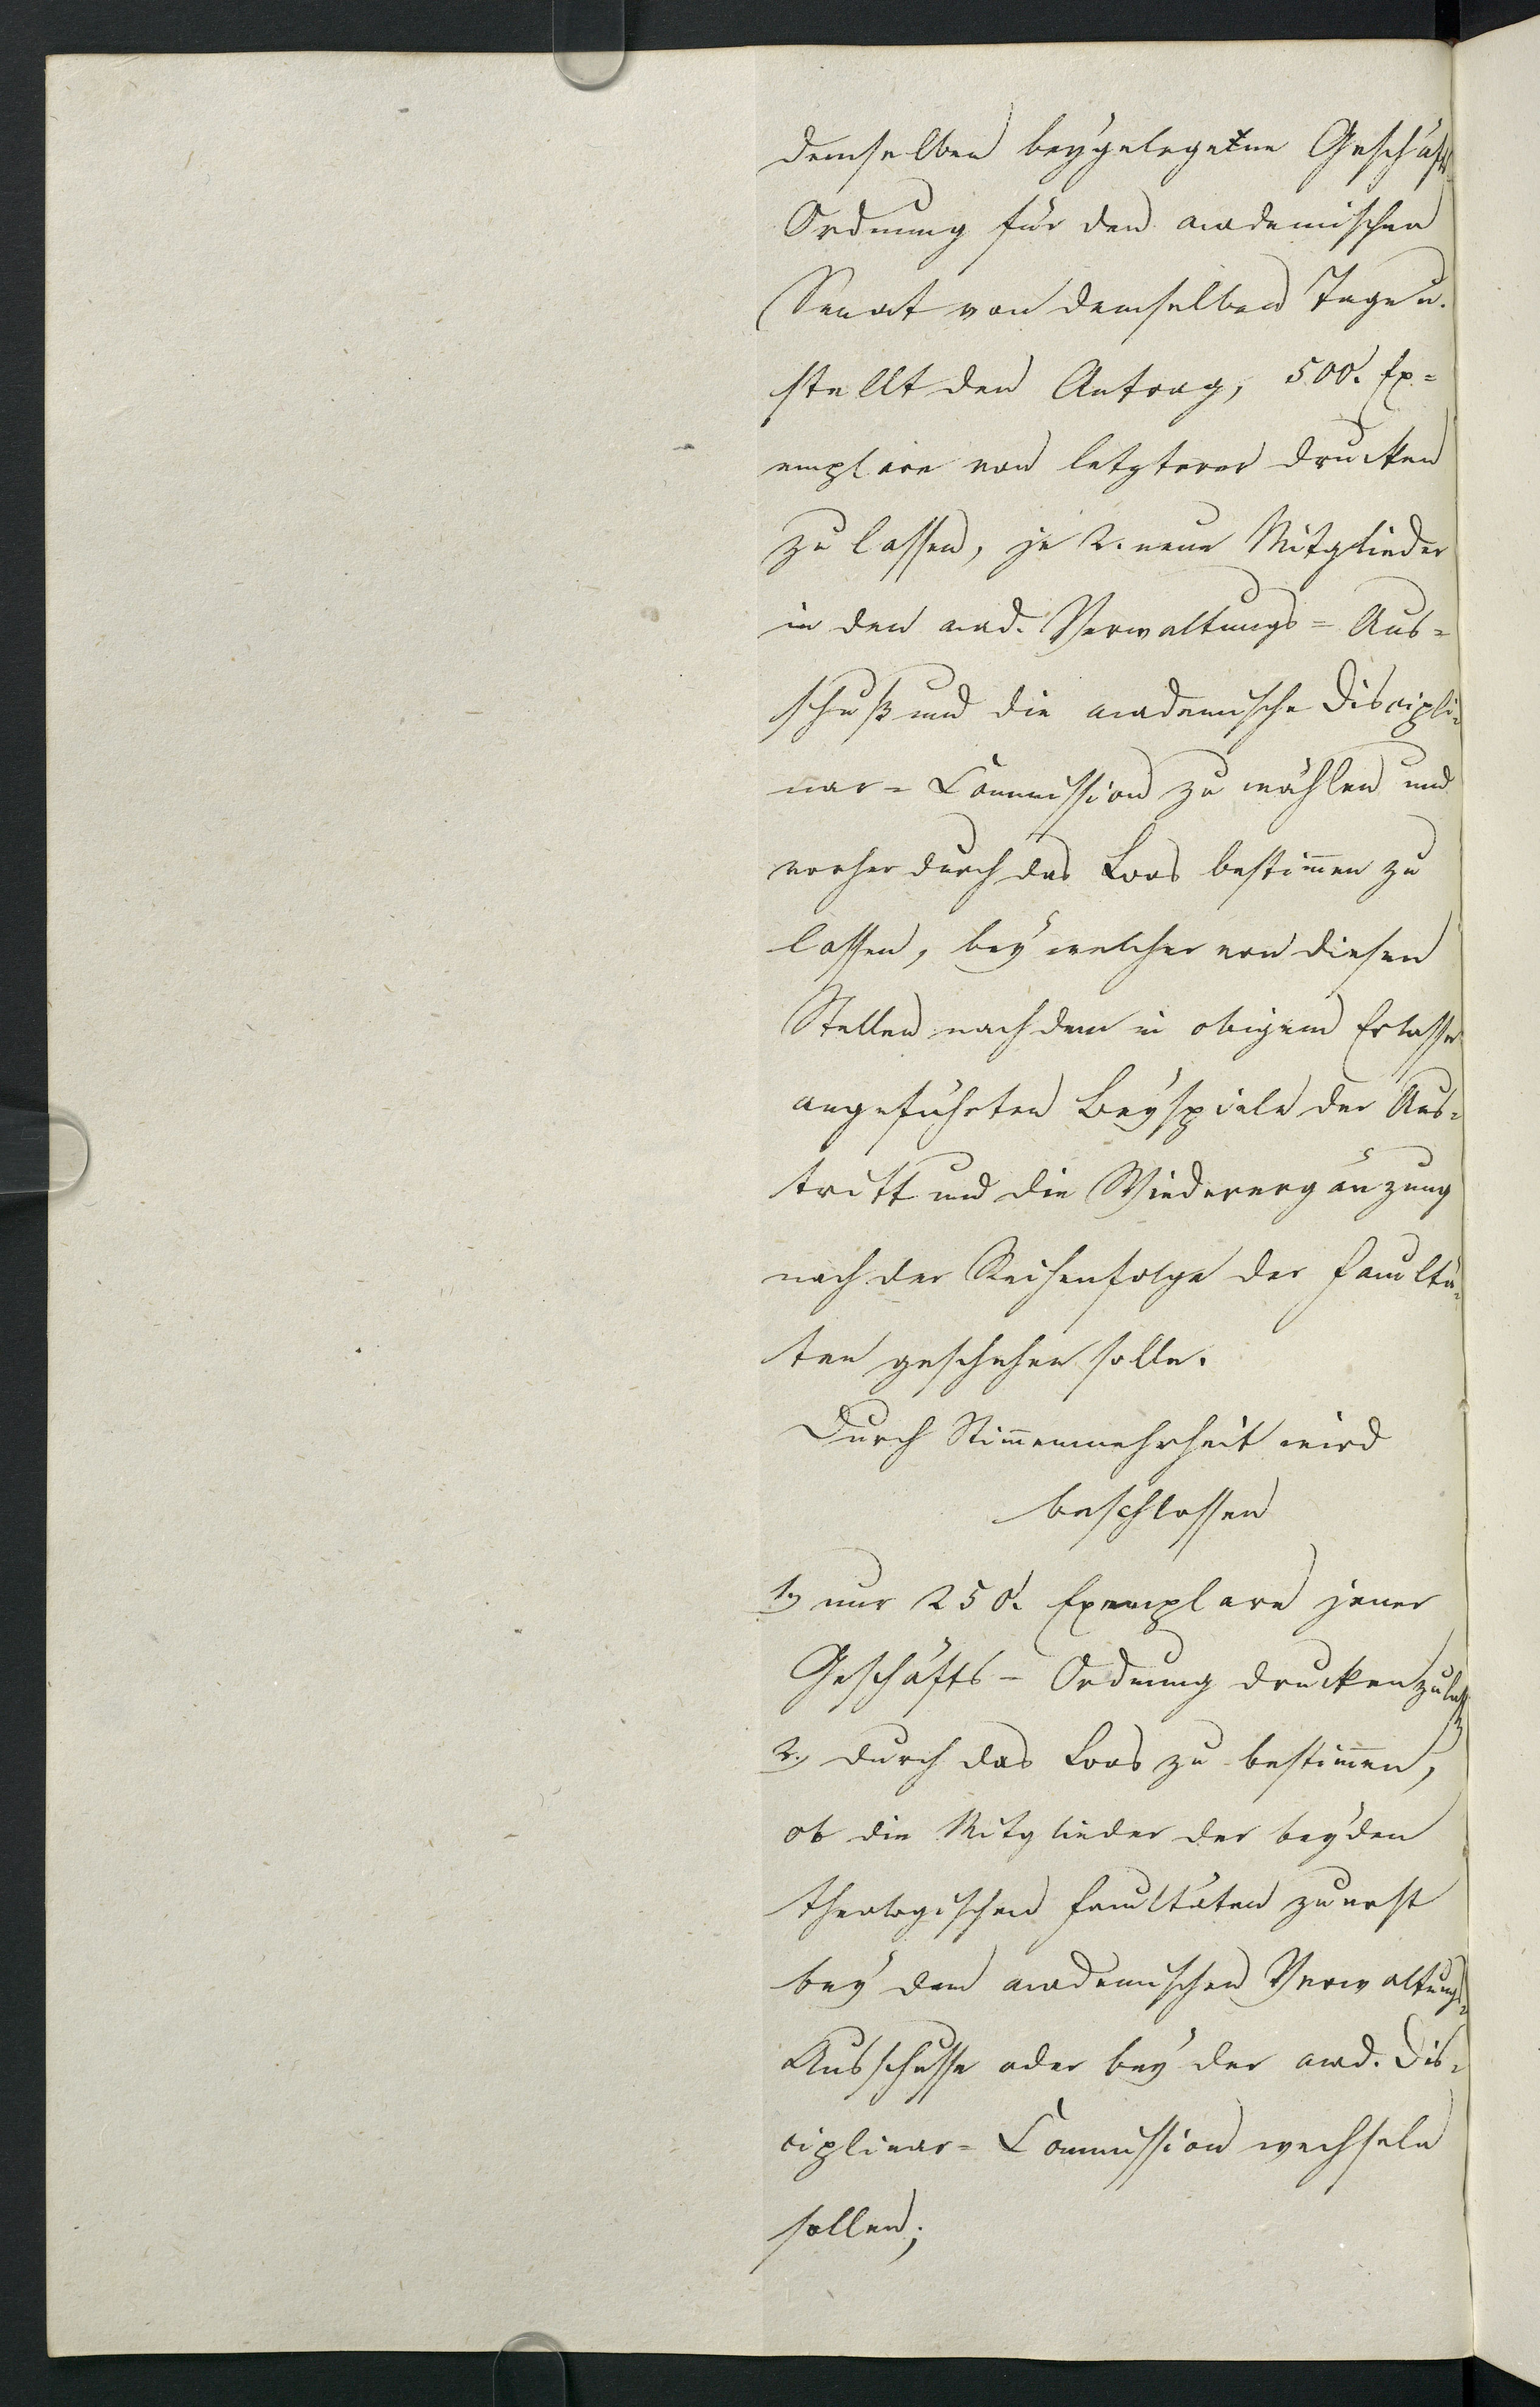 demselben beygelegene Geschäfts-
Ordnung für den academischen
Senat von demselben Tage u.
stellt den Antrag, 500. Ex=
emplare von letzterer drucken
zu lassen, je 2. neue Mitglieder
in den acad. Verwaltungs=Aus=
schuß und die academische Discipli=
nar=Commission zu wählen und
vorher durch das Loos bestim̄en zu
lassen, bey welcher von diesen
Stellen nach dem in obigem Erlasse
angeführten Beyspiele der Aus=
tritt und die Wiederergänzung
nach der Reihenfolge der Facultä=
ten geschehen solle.
Durch Stim̄enmehrheit wird
beschlossen
1.) nur 250. Exemplare jener
Geschäfts-Ordnung drucken zu lassen
2.) durch das Loos zu bestim̄en,
ob die Mitglieder der beyden
theologischen Facultäten zuerst
bey dem academischen Verwaltungs=
Ausschusse oder bey der acad. Dis=
ciplinar=Commission wechseln
sollen;